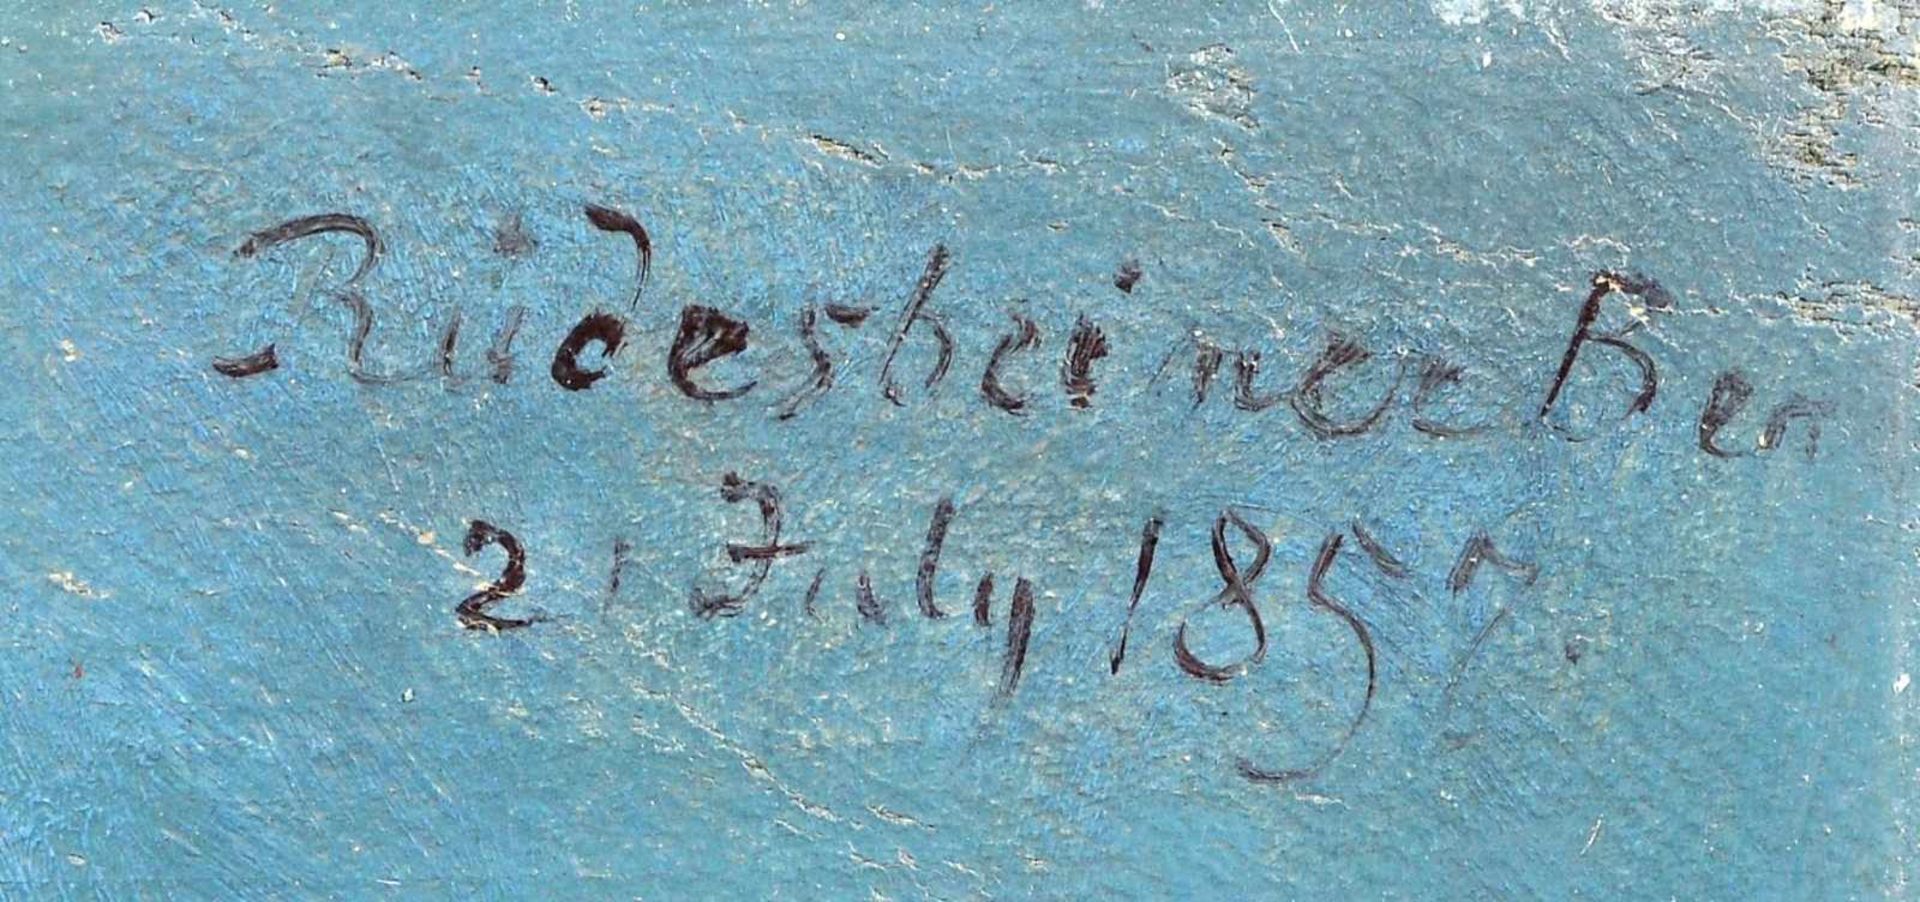 Rüdesheimer Ber
21 July 1857.